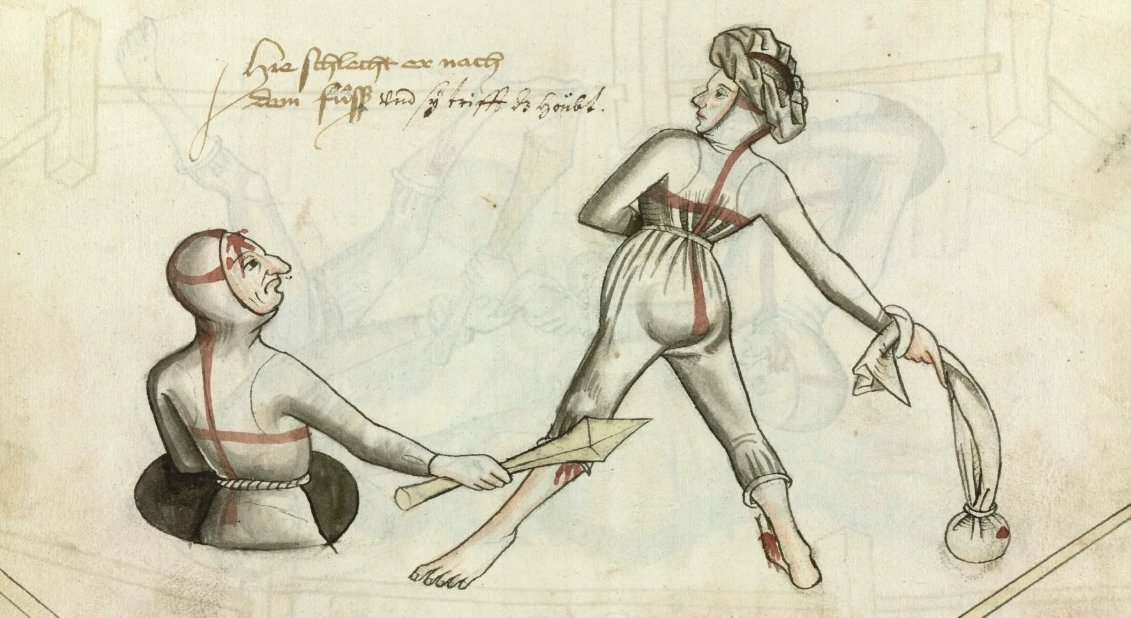 Hie schlecht er nach
dem fůß vnd sÿ triff dz hoübt.